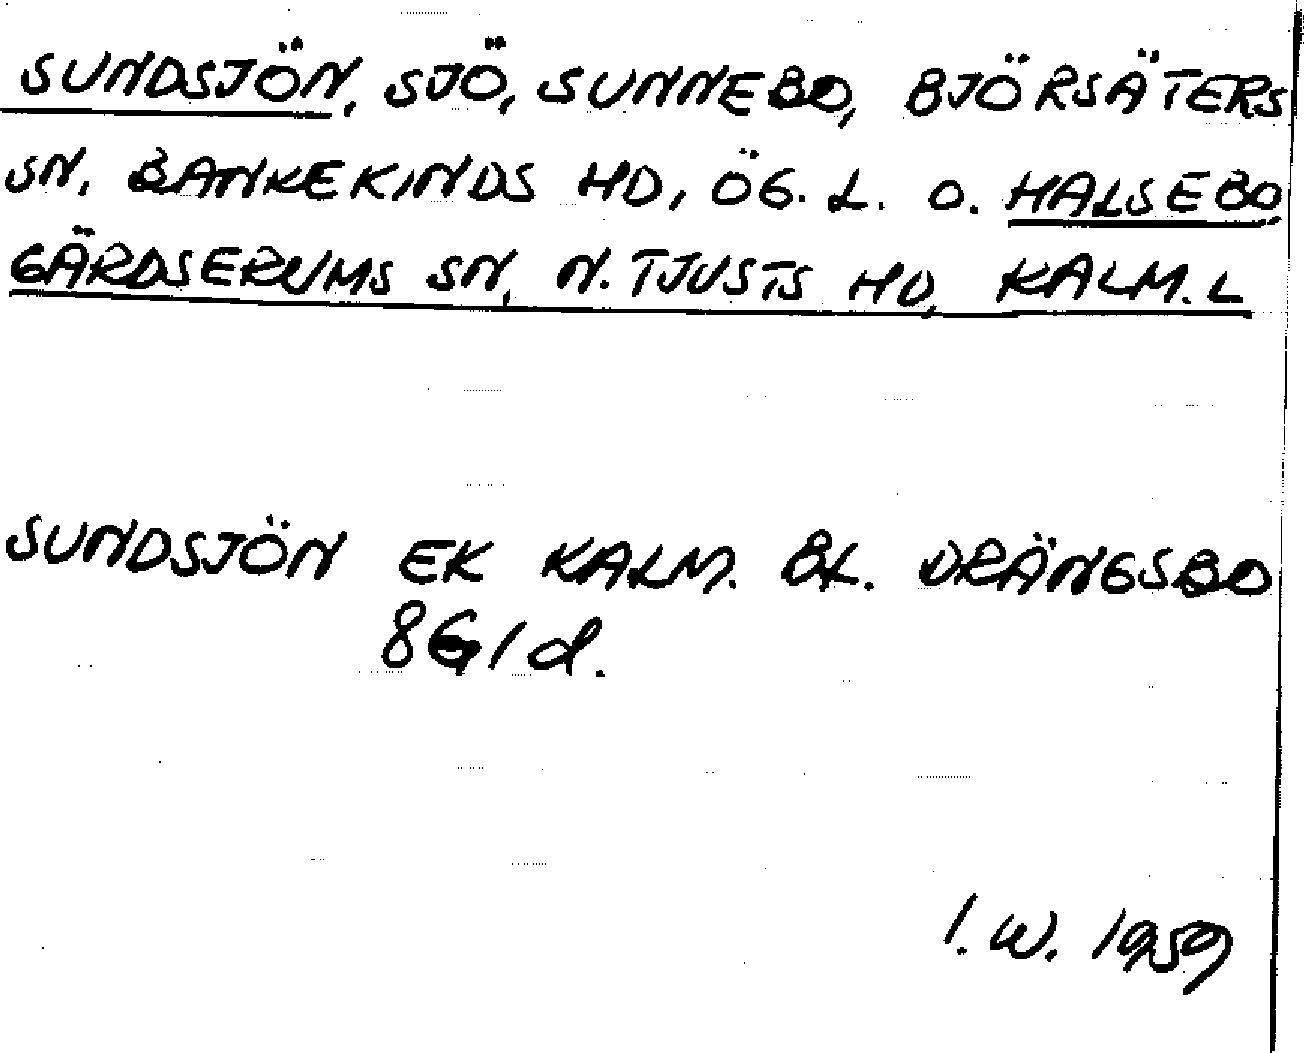 SUNDSJÖN, SJÖ, SUNNEBO, BJÖRSÄTERS
SN, BANKEKINDS HD, ÖG. L. O. HALSEBO
GÄRDSERUMS SN, N. TJUSTS HD, KALM. L
SUNDSJÖN EK KALM. BL. DRÄNGSBO
8G1d.
I. W. 1959